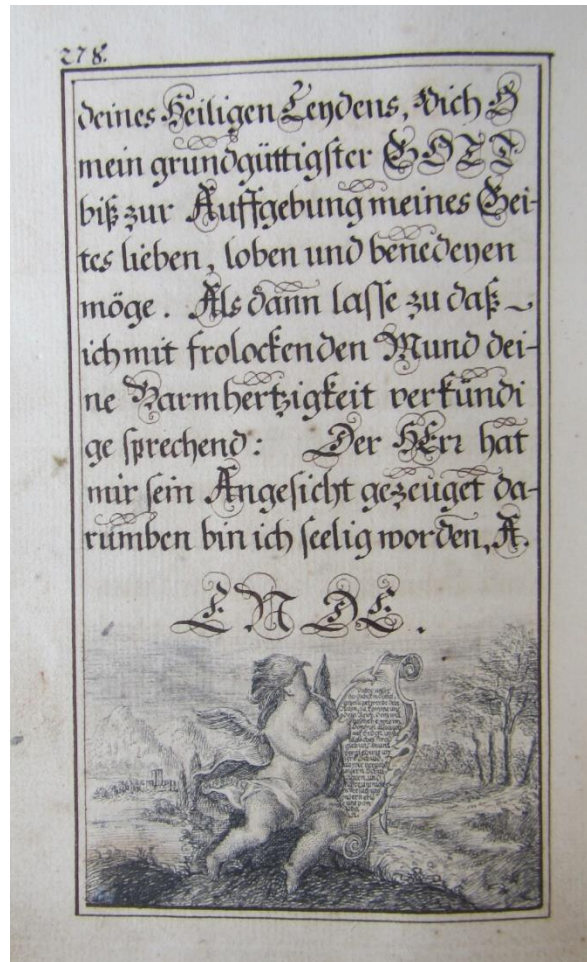 278.
deines Heiligen Leydens, Dich O
mein grundgüttigster GOTT
biß zur Auffgebung meines Gei-
tes lieben, loben und benedeyen
möge. Als dann lasse zu daß
ich mit frolockenden Mund dei-
ne Barmhertzigkeit verkündi
ge sprechend: Der HErr hat
mir sein Angesicht gezeuget da-
rumben bin ich seelig worden, A.
ENDE.
Vatter unser